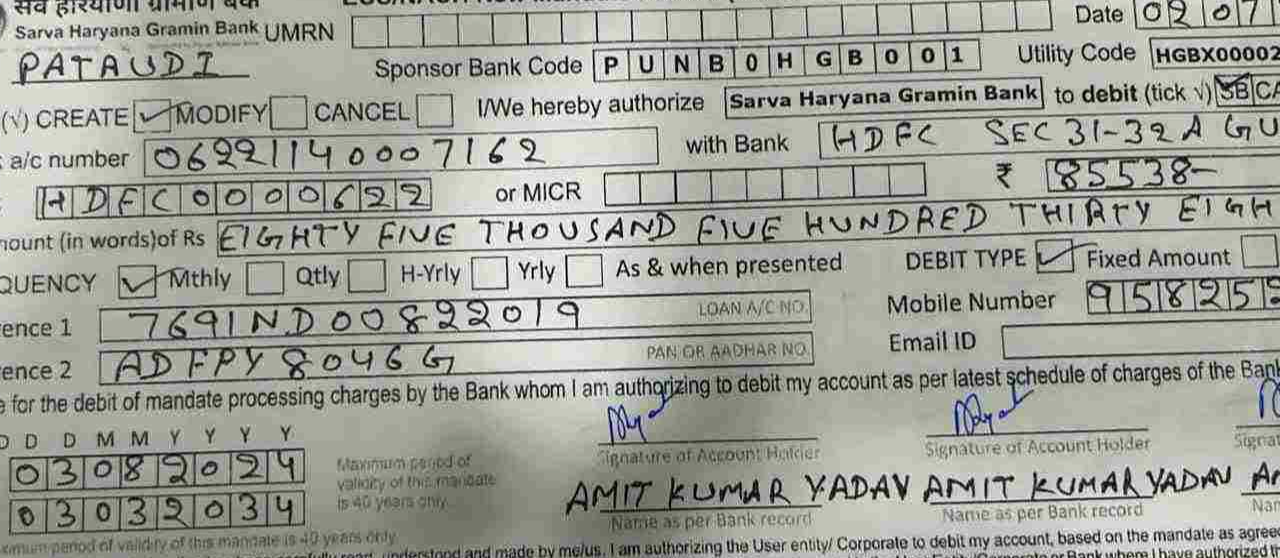 सर्व हरियाणा ग्रामीण बैंक
Sarva Haryana Gramin Bank UMRN Date 0207
PATAUDI Sponsor Bank Code PUNB0HGB001 Utility Code HGBX00002
(√) CREATE ✓ MODIFY CANCEL I/We hereby authorize Sarva Haryana Gramin Bank to debit (tick √) SB CA
a/c number 06221140007162 with Bank HDFC SEC 31-32 A GU
HDFC0000622 or MICR ₹ 85538-
mount (in words)of Rs EIGHTY FIVE THOUSAND FIVE HUNDRED THIRTY EIGH
QUENCY ✓ Mthly Qtly H-Yrly Yrly As & when presented DEBIT TYPE ✓ Fixed Amount
rence 1 7691ND00822019 LOAN A/C NO. Mobile Number 958252
rence 2 ADFPY8046G PAN OR AADHAR NO. Email ID
e for the debit of mandate processing charges by the Bank whom I am authorizing to debit my account as per latest schedule of charges of the Bank
D D M M Y Y Y Y
03082024 Maximum period of validity of this mandate is 40 years only. Signature of Account Holder Signature of Account Holder Signa
03032034 AMIT KUMAR YADAV AMIT KUMAR YADAV A
Name as per Bank record Name as per Bank record Nar
ximum period of validity of this mandate is 40 years only.
understood and made by me/us. I am authorizing the User entity/ Corporate to debit my account, based on the mandate as agree